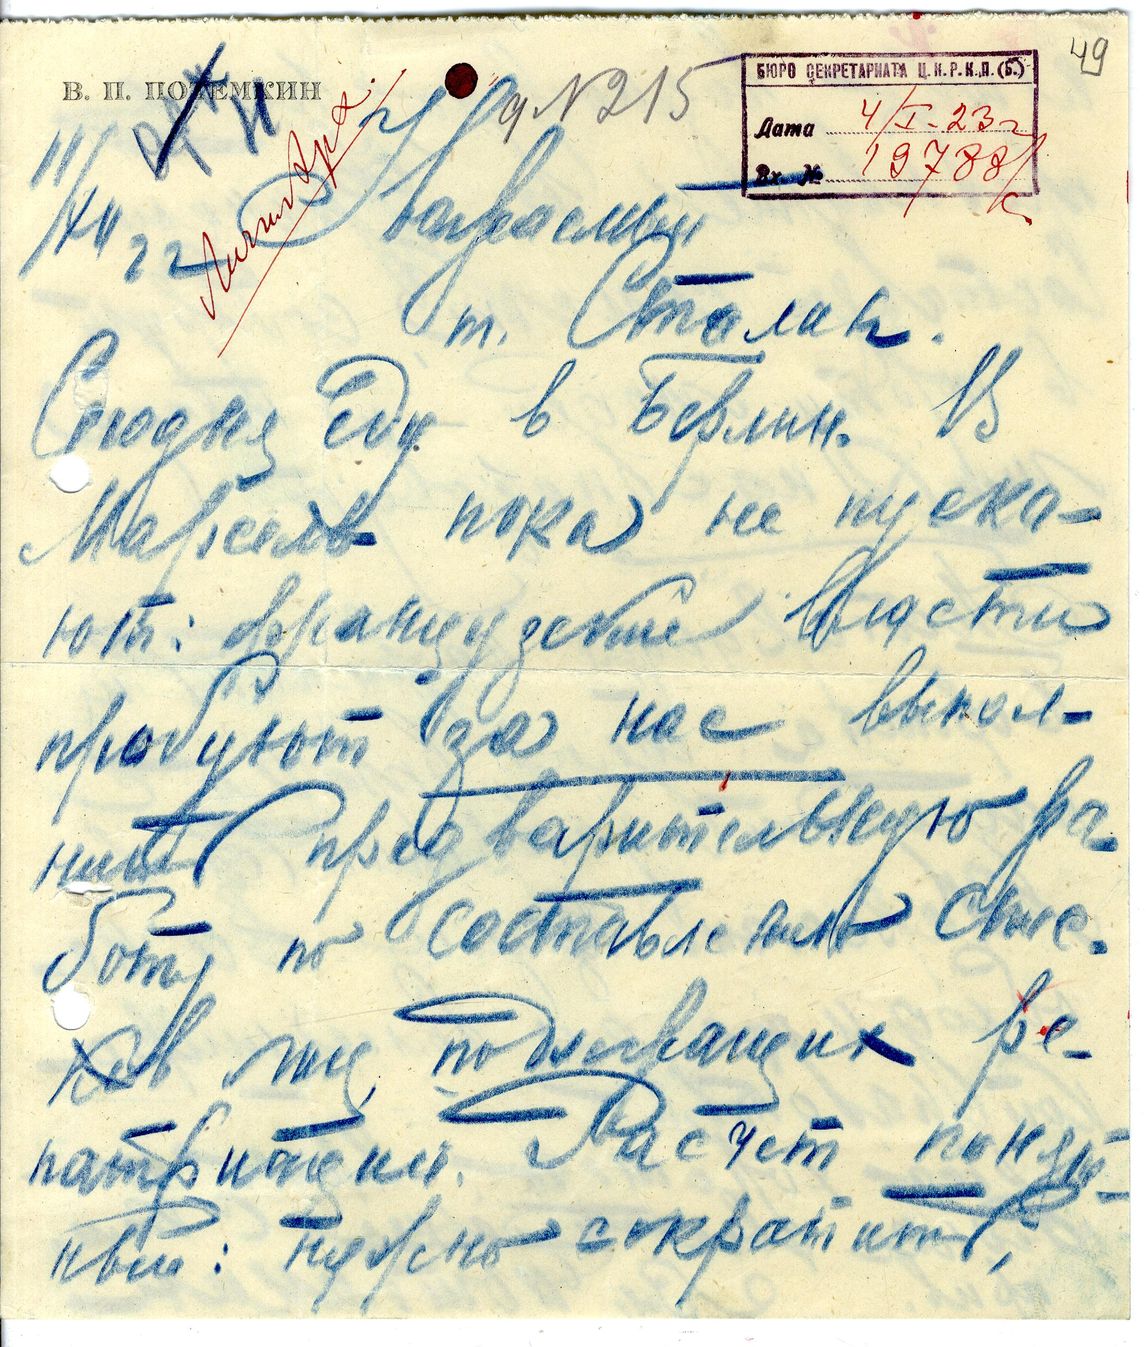 В. П. ПОТЕМКИН
№ 215
49
БЮРО СЕКРЕТАРИАТА Ц.К.Р.К.П.(Б.)
Дата 4/I-23 г
Вх. № 19788/к
11/XII 22
Уважаемый
т. Сталин.
Сегодня еду в Берлин. В
Марсель пока не пуска-
ют: французские власти
пробуют за нас выпол-
нить предварительную ра-
боту по составлению спис-
ков лиц, подлежащих ре-
патриации. Расчет понят-
ный: нужно сократить,